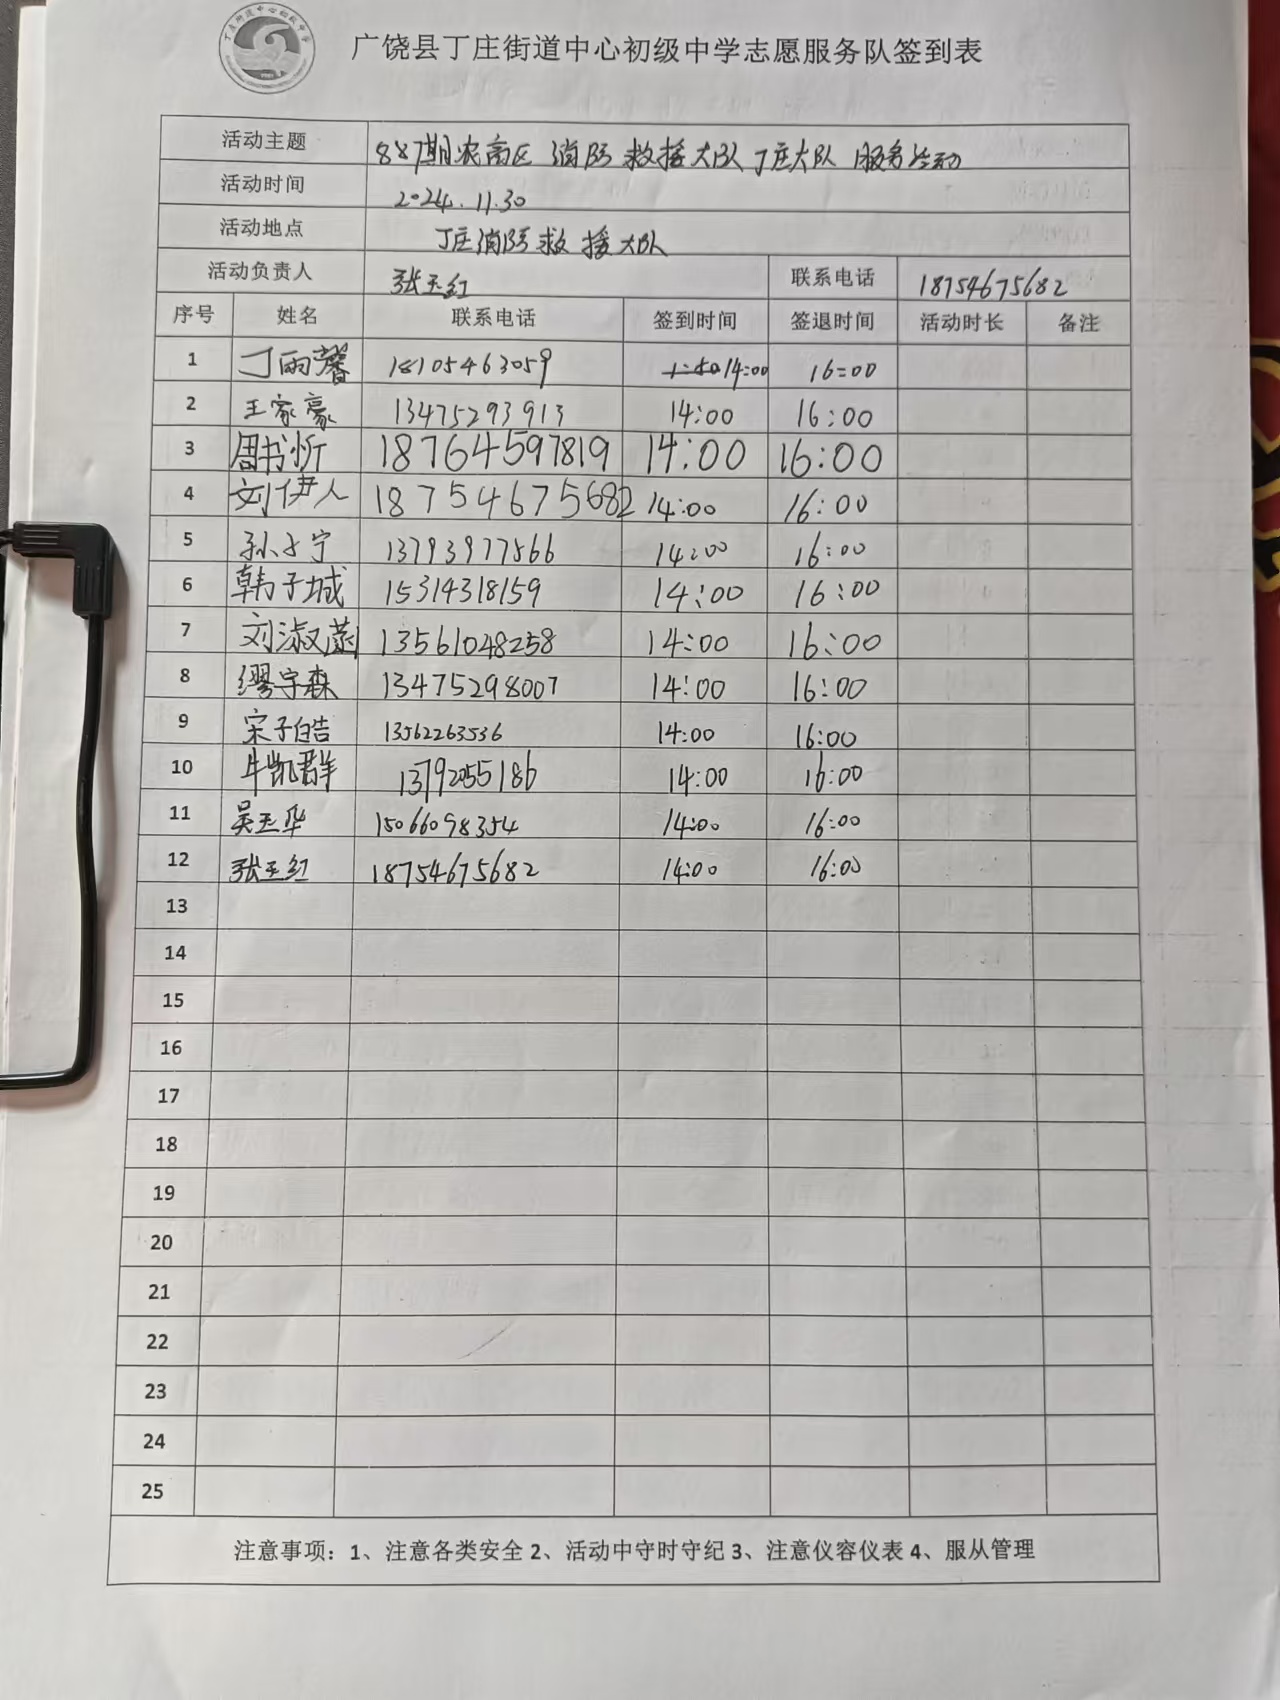 丁庄街道中心初级中学
广饶县丁庄街道中心初级中学志愿服务队签到表
活动主题 887期农高区 消防 救援大队丁庄大队 服务活动
活动时间 2024.11.30
活动地点 丁庄消防救援大队
活动负责人 张玉红 联系电话 18754675682
序号 姓名 联系电话 签到时间 签退时间 活动时长 备注
1 丁雨馨 18105463059 14:00 16:00
2 王家豪 13475293913 14:00 16:00
3 周书忻 18764597819 14:00 16:00
4 刘伊人 18754675682 14:00 16:00
5 孙 宁 13793977566 14:00 16:00
6 韩子城 15314318159 14:00 16:00
7 刘淑菡 13561048258 14:00 16:00
8 缪宇森 13475298007 14:00 16:00
9 宋子皓 13562263536 14:00 16:00
10 牛凯群 13792055186 14:00 16:00
11 吴玉华 15066098354 14:00 16:00
12 张玉红 18754675682 14:00 16:00
13
14
15
16
17
18
19
20
21
22
23
24
25
注意事项：1、注意各类安全 2、活动中守时守纪 3、注意仪容仪表 4、服从管理